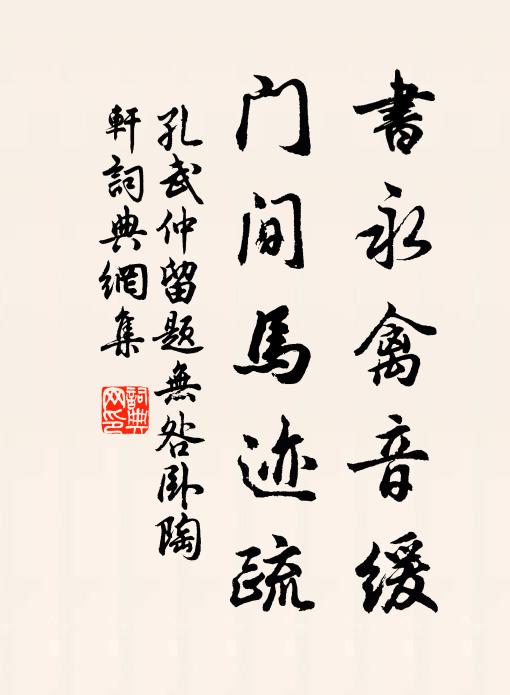 書永禽音緩
门间馬迹疏
孔武仲留題無咎卧陶
軒詞典網集
詞典网印